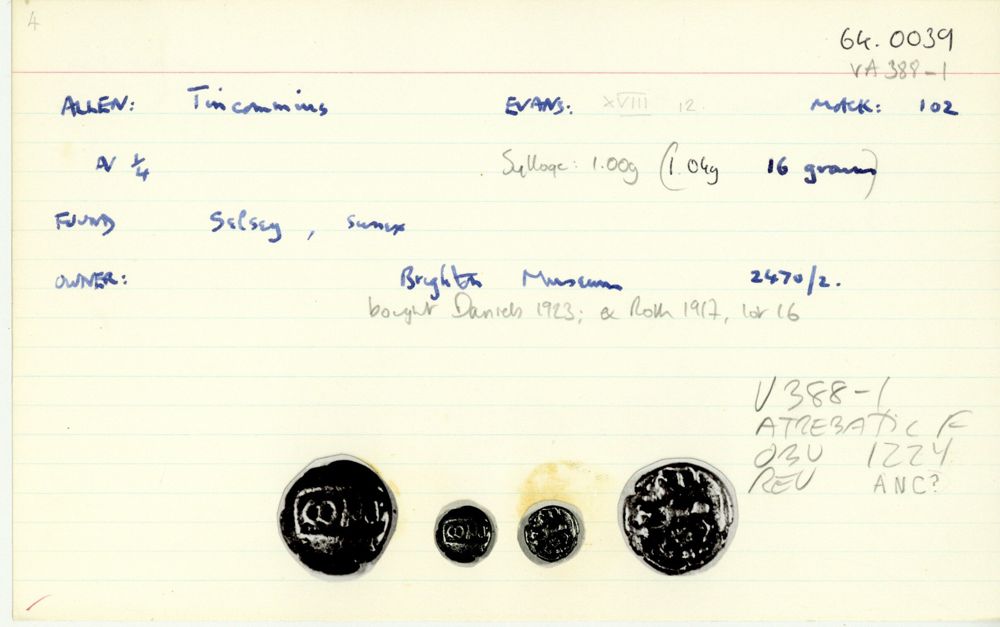 4
64.0039
VA 388-1
ALLEN: Tincommius EVANS: XVIII 12. MACK: 102
AV 1/4 Sylloge: 1.00g (1.04g 16 grains)
FOUND Selsey, Sussex
OWNER: Brighton Museum 2470/2.
bought Daniels 1923; ex Roth 1917, lot 16
V 388-1
ATREBATIC F
OBV 1224
REV ANC?
COMF